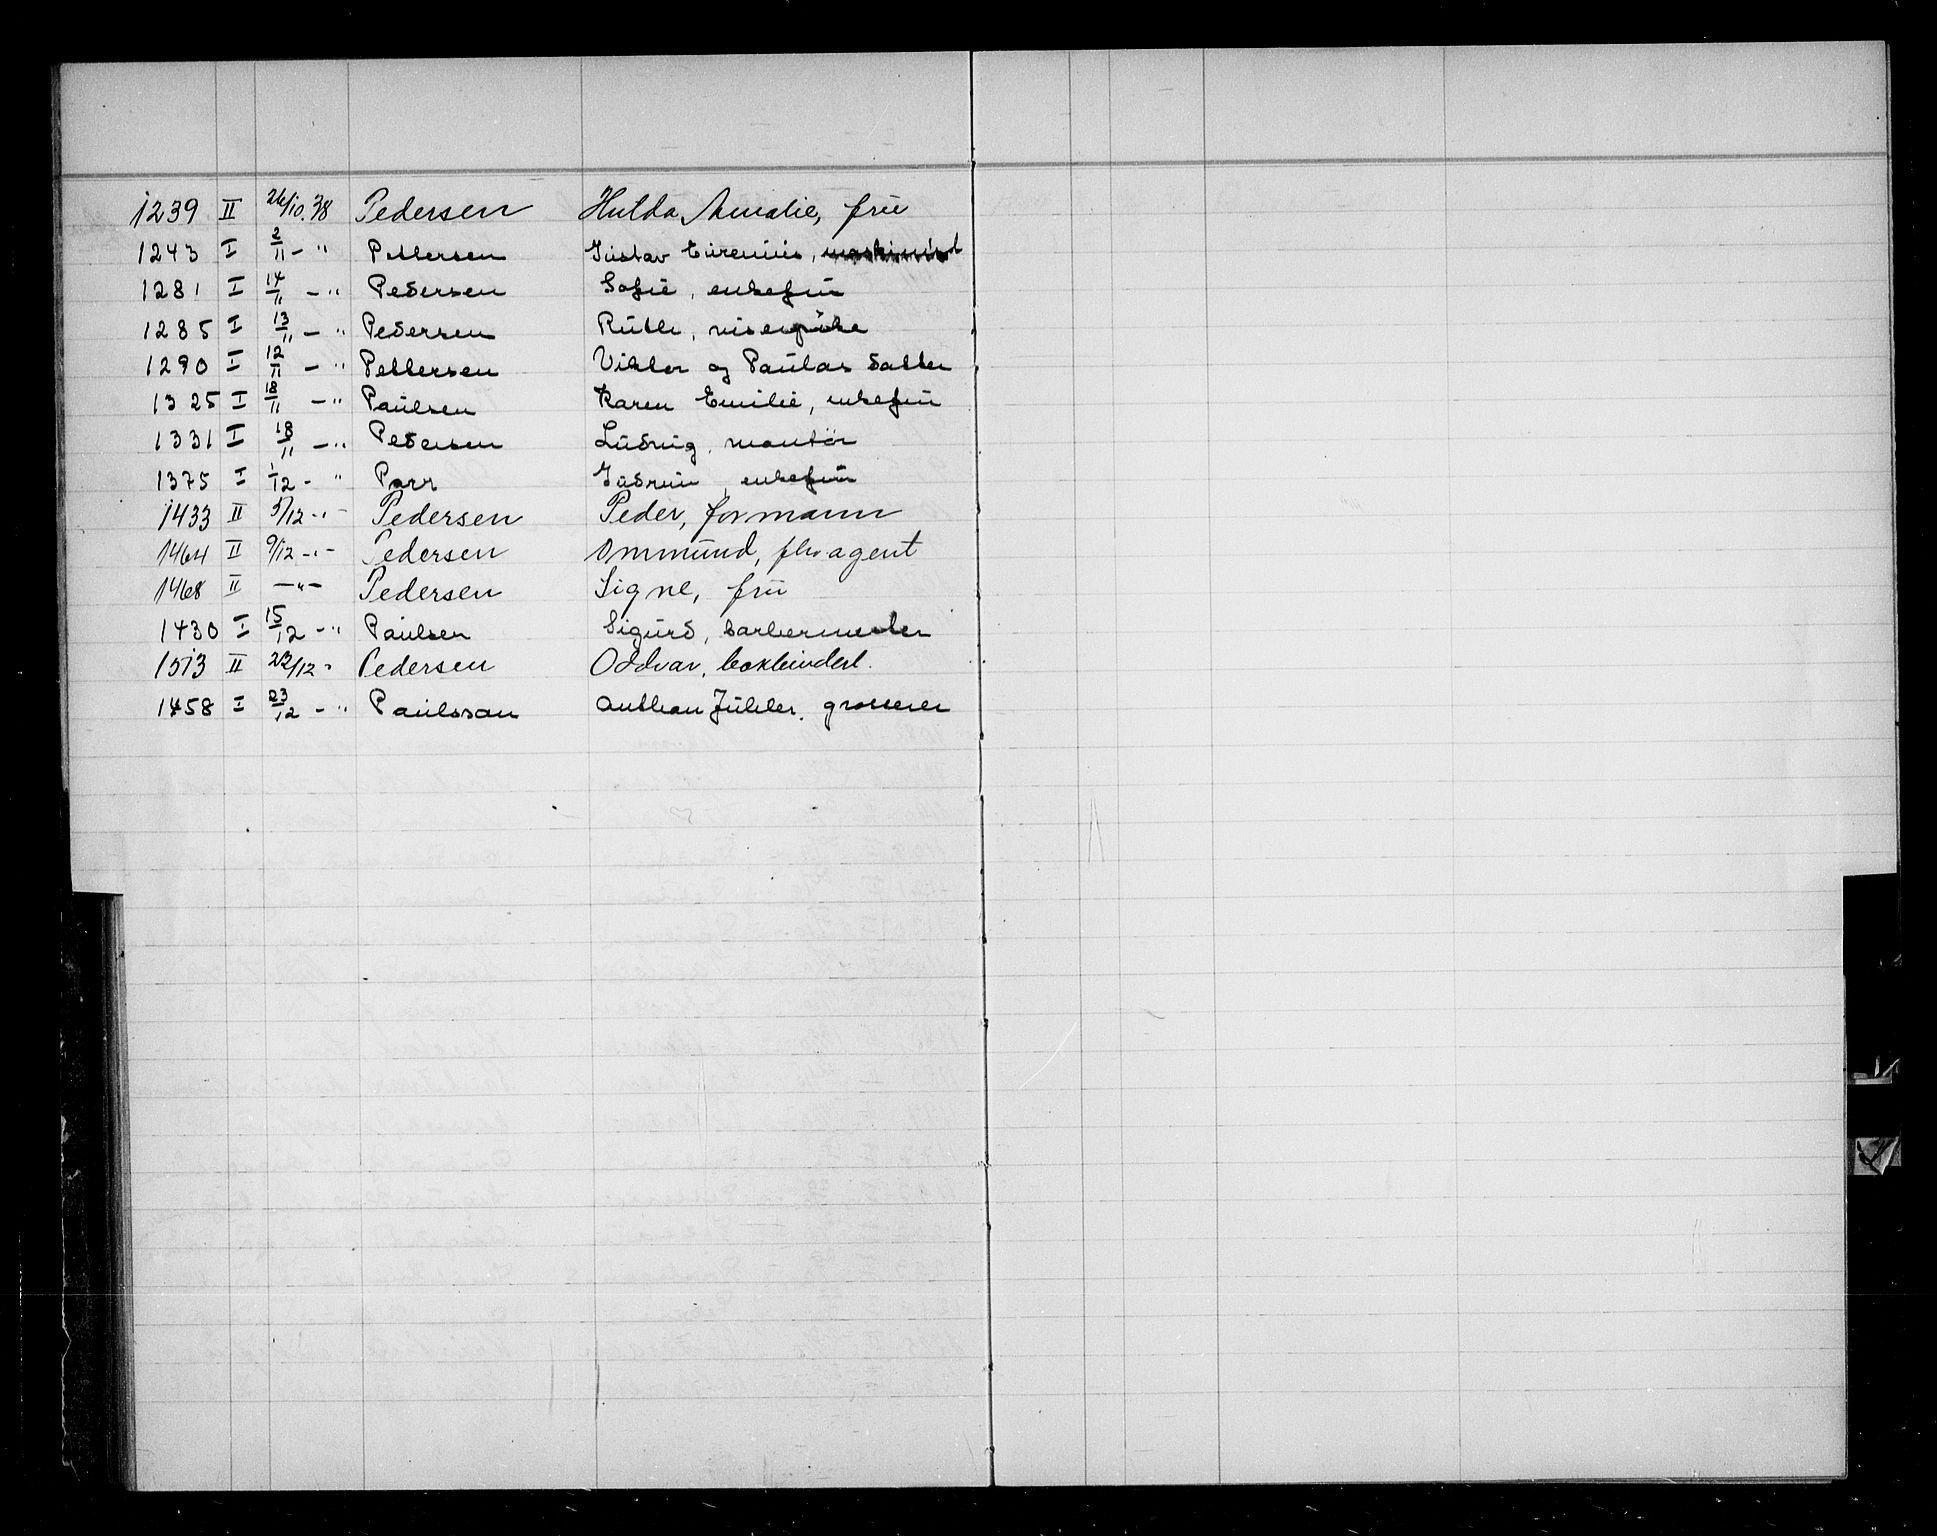 1239 II 26/10.38 Pedersen Hulda Amalie, frü
1243 I 2/11 - " Pettersen Güstav Eüreniüs, maskinist
1281 I 14/11 - " Pedersen Sofie, enkefrü
1285 I 13/11 - " Pedersen Rüth,
1290 I 12/11 - " Pettersen Viktor og Paülas datter
1325 I 18/11 - " Paülsen Karen Emilie, enkefrü
1331 I 18/11 - " Pedersen Lüdvig, montör
1375 I 1/12 - " Parr Güdrün, enkefrü
1433 II 5/12 - " - Pedersen Peder, formann
1464 II 9/12 - " - Pedersen Ommünd, fhv agent
1468 II - " - Pedersen Signe, frü
1430 I 15/12 - " Paülsen Sigürd, barbermester
1513 II 22/12 - Pedersen Oddvar, bokbinderl.
1458 I 23/12 - " Paülsson Anthon Jühler, grosserer